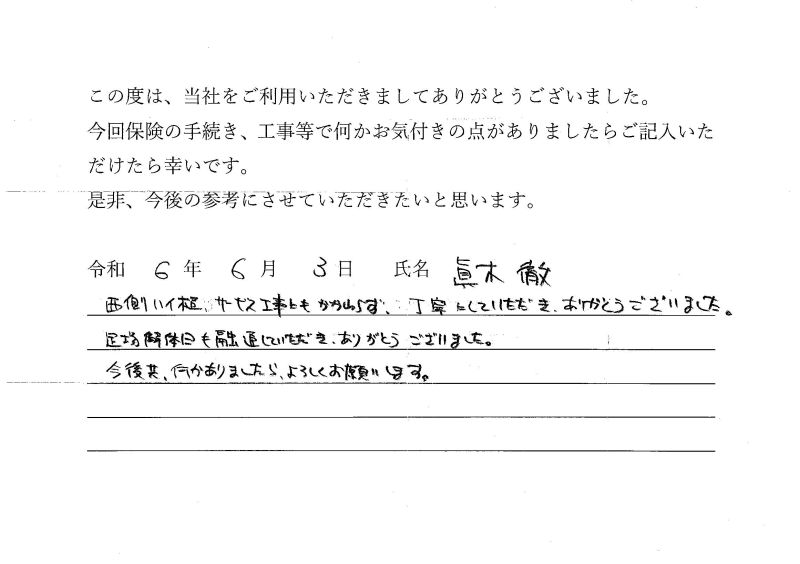 この度は、当社をご利用いただきましてありがとうございました。
今回保険の手続き、工事等で何かお気付きの点がありましたらご記入いた
だけたら幸いです。
是非、今後の参考にさせていただきたいと思います。
令和 6 年 6 月 3 日 氏名 眞木 徹
西側ハイ樋、サービス工事にもかかわらず、丁寧にしていただき、ありがとうございました。
足場解体日も融通していただき、ありがとうございました。
今後共、何かありましたら、よろしくお願いします。